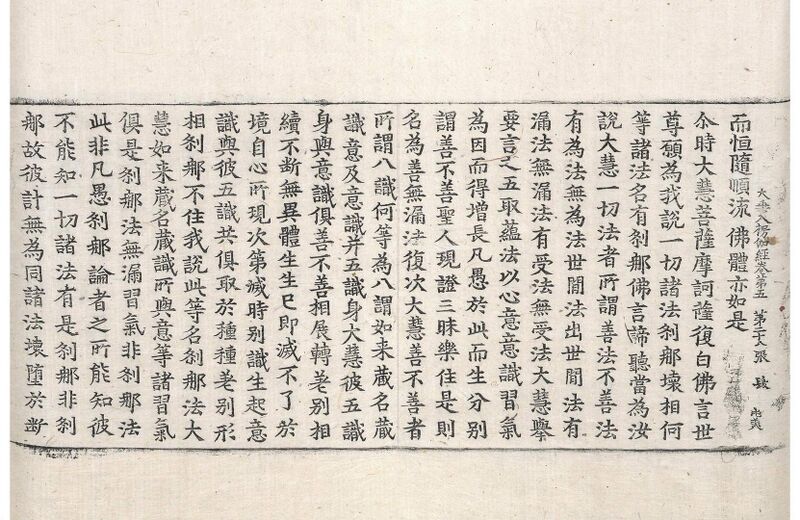 大乘入楞伽經卷第五 第二十八張 致
而恒隨順流 佛體亦如是
尒時大慧菩薩摩訶薩復白佛言世
尊願為我說一切諸法刹那壞相何
等諸法名有刹那佛言諦聽當為汝
說大慧一切法者所謂善法不善法
有為法無為法世間法出世間法有
漏法無漏法有受法無受法大慧舉
要言之五取蘊法以心意意識習氣
為因而得增長凡愚於此而生分別
謂善不善聖人現證三昧樂住是則
名為善無漏法復次大慧善不善者
所謂八識何等為八謂如来藏名藏
識意及意識并五識身大慧彼五識
身與意識俱善不善相展轉差別相
續不断無異體生生已即滅不了於
境自心所現次第滅時別識生起意
識與彼五識共俱取於種種差別形
相刹那不住我說此等名刹那法大
慧如来藏名藏識所與意等諸習氣
俱是刹那法無漏習氣非刹那法
此非凡愚刹那論者之所能知彼
不能知一切諸法有是刹那非刹
那故彼計無為同諸法壞墮於断